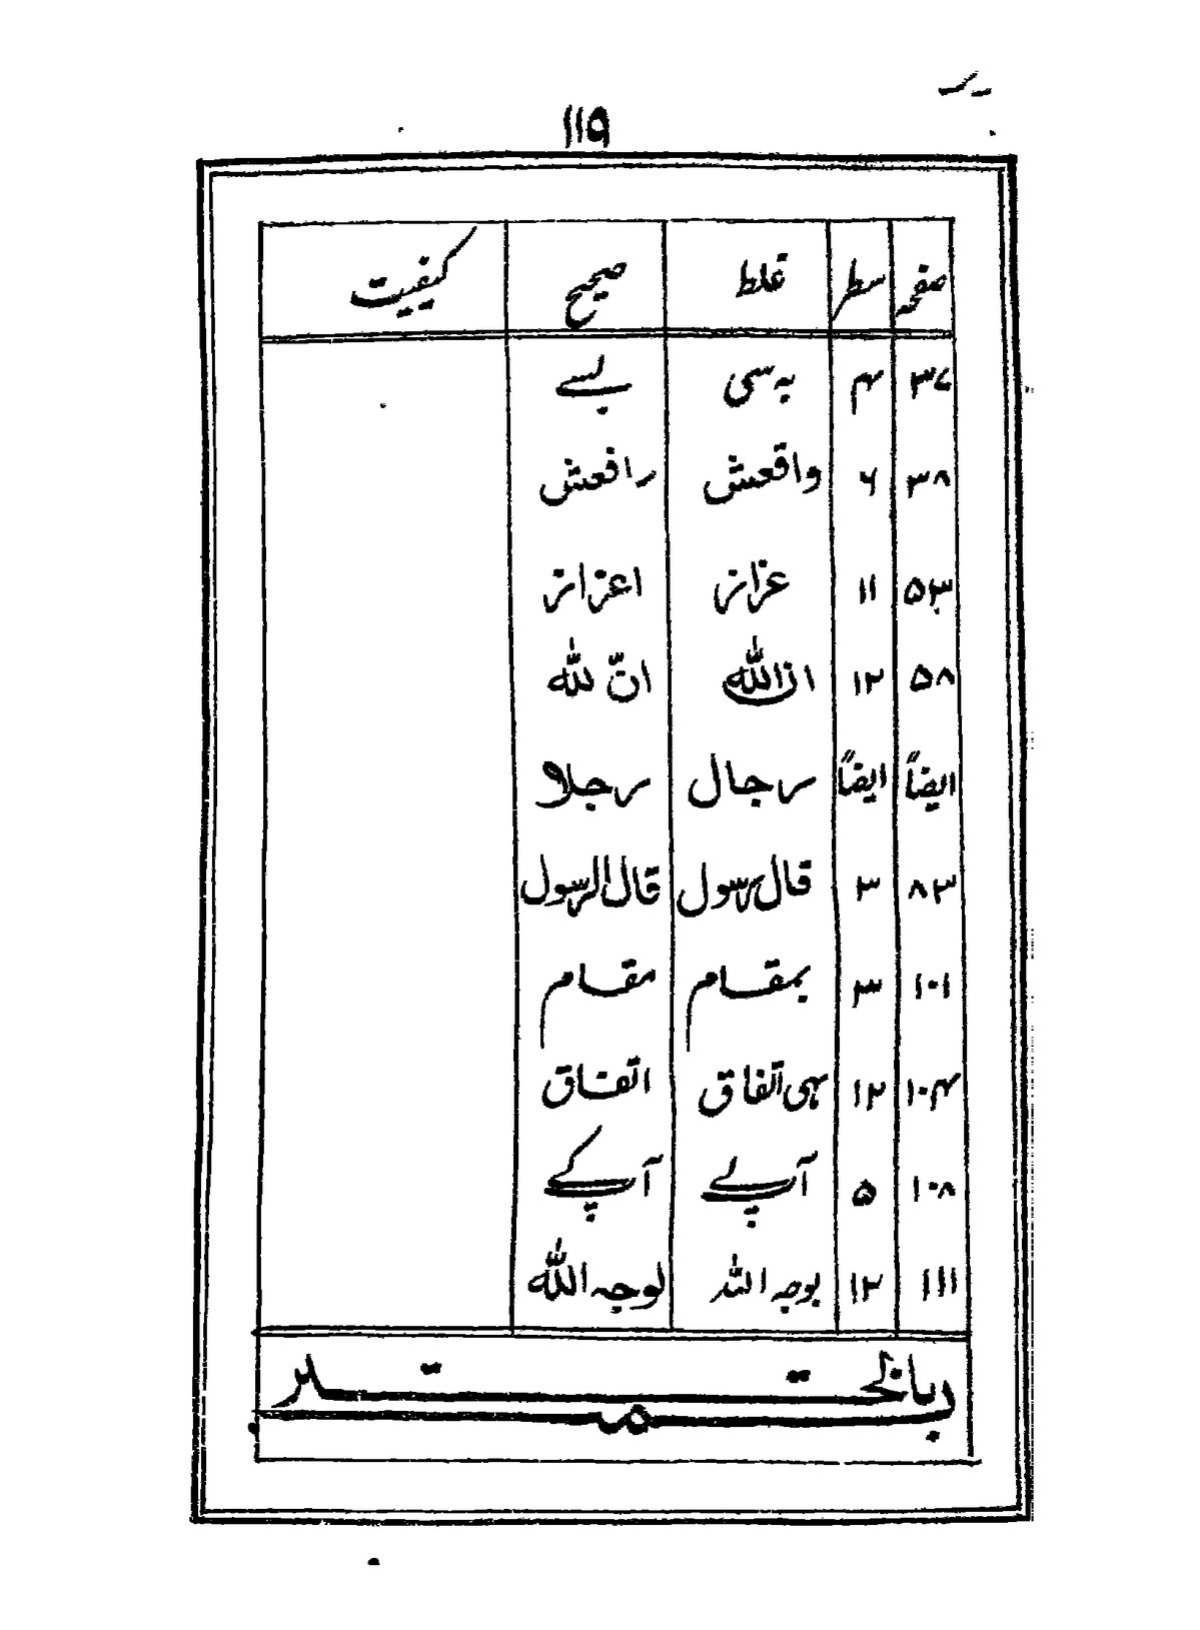 ۱۱۹
صفحہ سطر غلط صحیح کیفیت
۳۷ ۴ بہ سی بسے
۳۸ ۶ واقعش رافعش
۵۳ ۱۱ عزاز اعزاز
۵۸ ۱۲ ان اللہ انّ للہ
ایضاً ایضاً رجال رجلا
۸۳ ۳ قال رسول قال الرسول
۱۰۱ ۳ بمقام مقام
۱۰۴ ۱۲ ہی اتفاق اتفاق
۱۰۸ ۵ آپ لے آپ کے
۱۱۱ ۱۲ بوجہ اللہ لوجہ اللہ